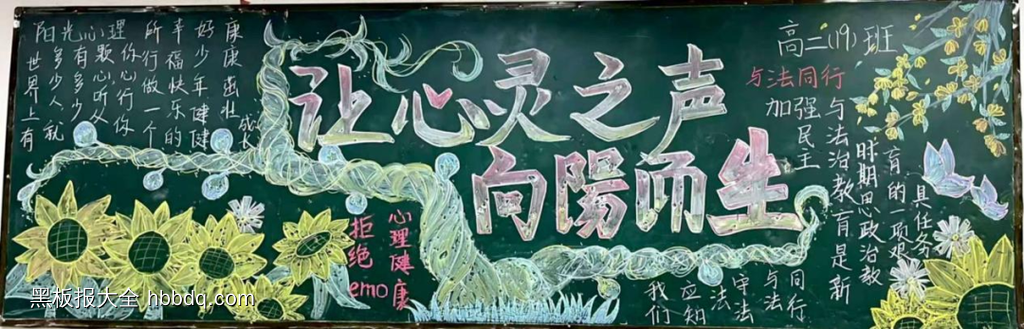 让心灵之声
向陽而生
阳光心理
世界上有
多少人就
有多少
颗心听从
你心行你
所行做一个
幸福快乐的
好少年健健
康康茁壮
成长
高二(19)班
与法同行
加强民主
与法治教育是新
时期思政治教
育的一项艰
具任务
心理健康
拒绝emo
我们
应知
法
守法
与法
同行
黑板报大全 hbbdq.com